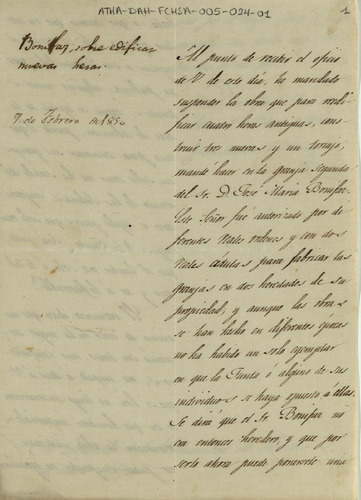 ATHA-DAH-FCHSA-005-024-01
1
Bonifaz, sobre edificar
nuevas heras.
7. de Febrero de 1850
Al punto de recibir el oficio
de V. de este dia, he mandado
suspender la obra que para reedi-
ficar cuatro heras antiguas, cons-
truir tres nuevas y un
mandé hacer en la granja segunda
del Sr. D. José Maria Bonifaz.
Este Señor fué autorizado por di-
ferentes Reales ordenes y con dos
Reales cédulas para fabricar las
granjas en dos heredades de su
propiedad, y aunque las obras
se han hecho en diferentes épocas
no ha habido un solo ejemplar
en que la Junta ó alguno de sus
individuos se haya opuesto á ellas.
Se dirá que el Sr. Bonifaz no
era entonces heredero, y que por
serlo ahora puede ponersele una